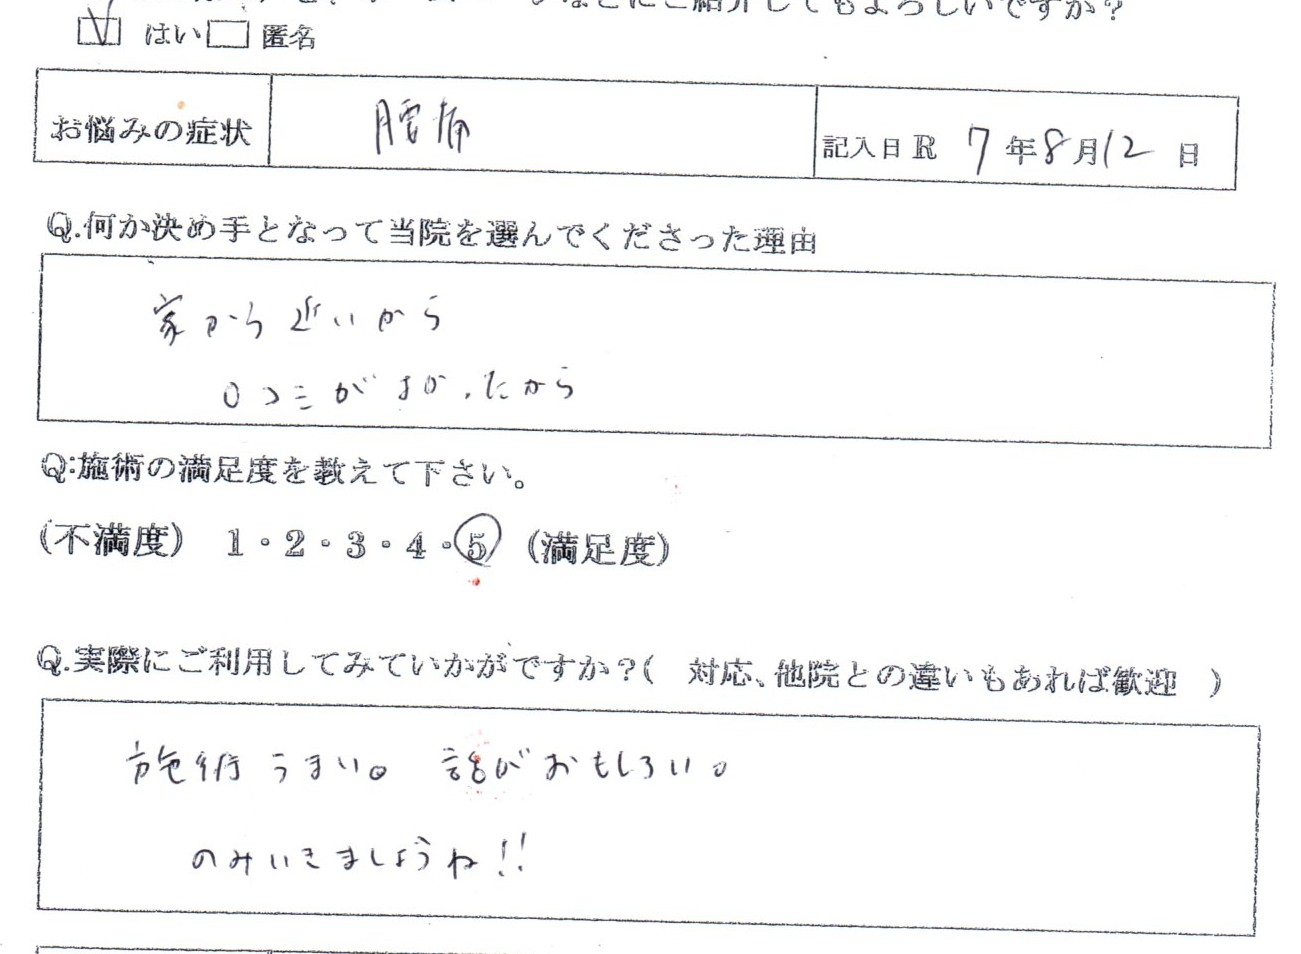 ご紹介してもよろしいですか?
はい 匿名
お悩みの症状 腰痛 記入日 R 7年8月12日
Q.何か決め手となって当院を選んでくださった理由
家から近いから
口コミがよかったから
Q:施術の満足度を教えて下さい。
(不満度) 1・2・3・4・5 (満足度)
Q.実際にご利用してみていかがですか?( 対応、他院との違いもあれば歓迎 )
施術うまい。 話がおもしろい。
のみいきましょうね!!